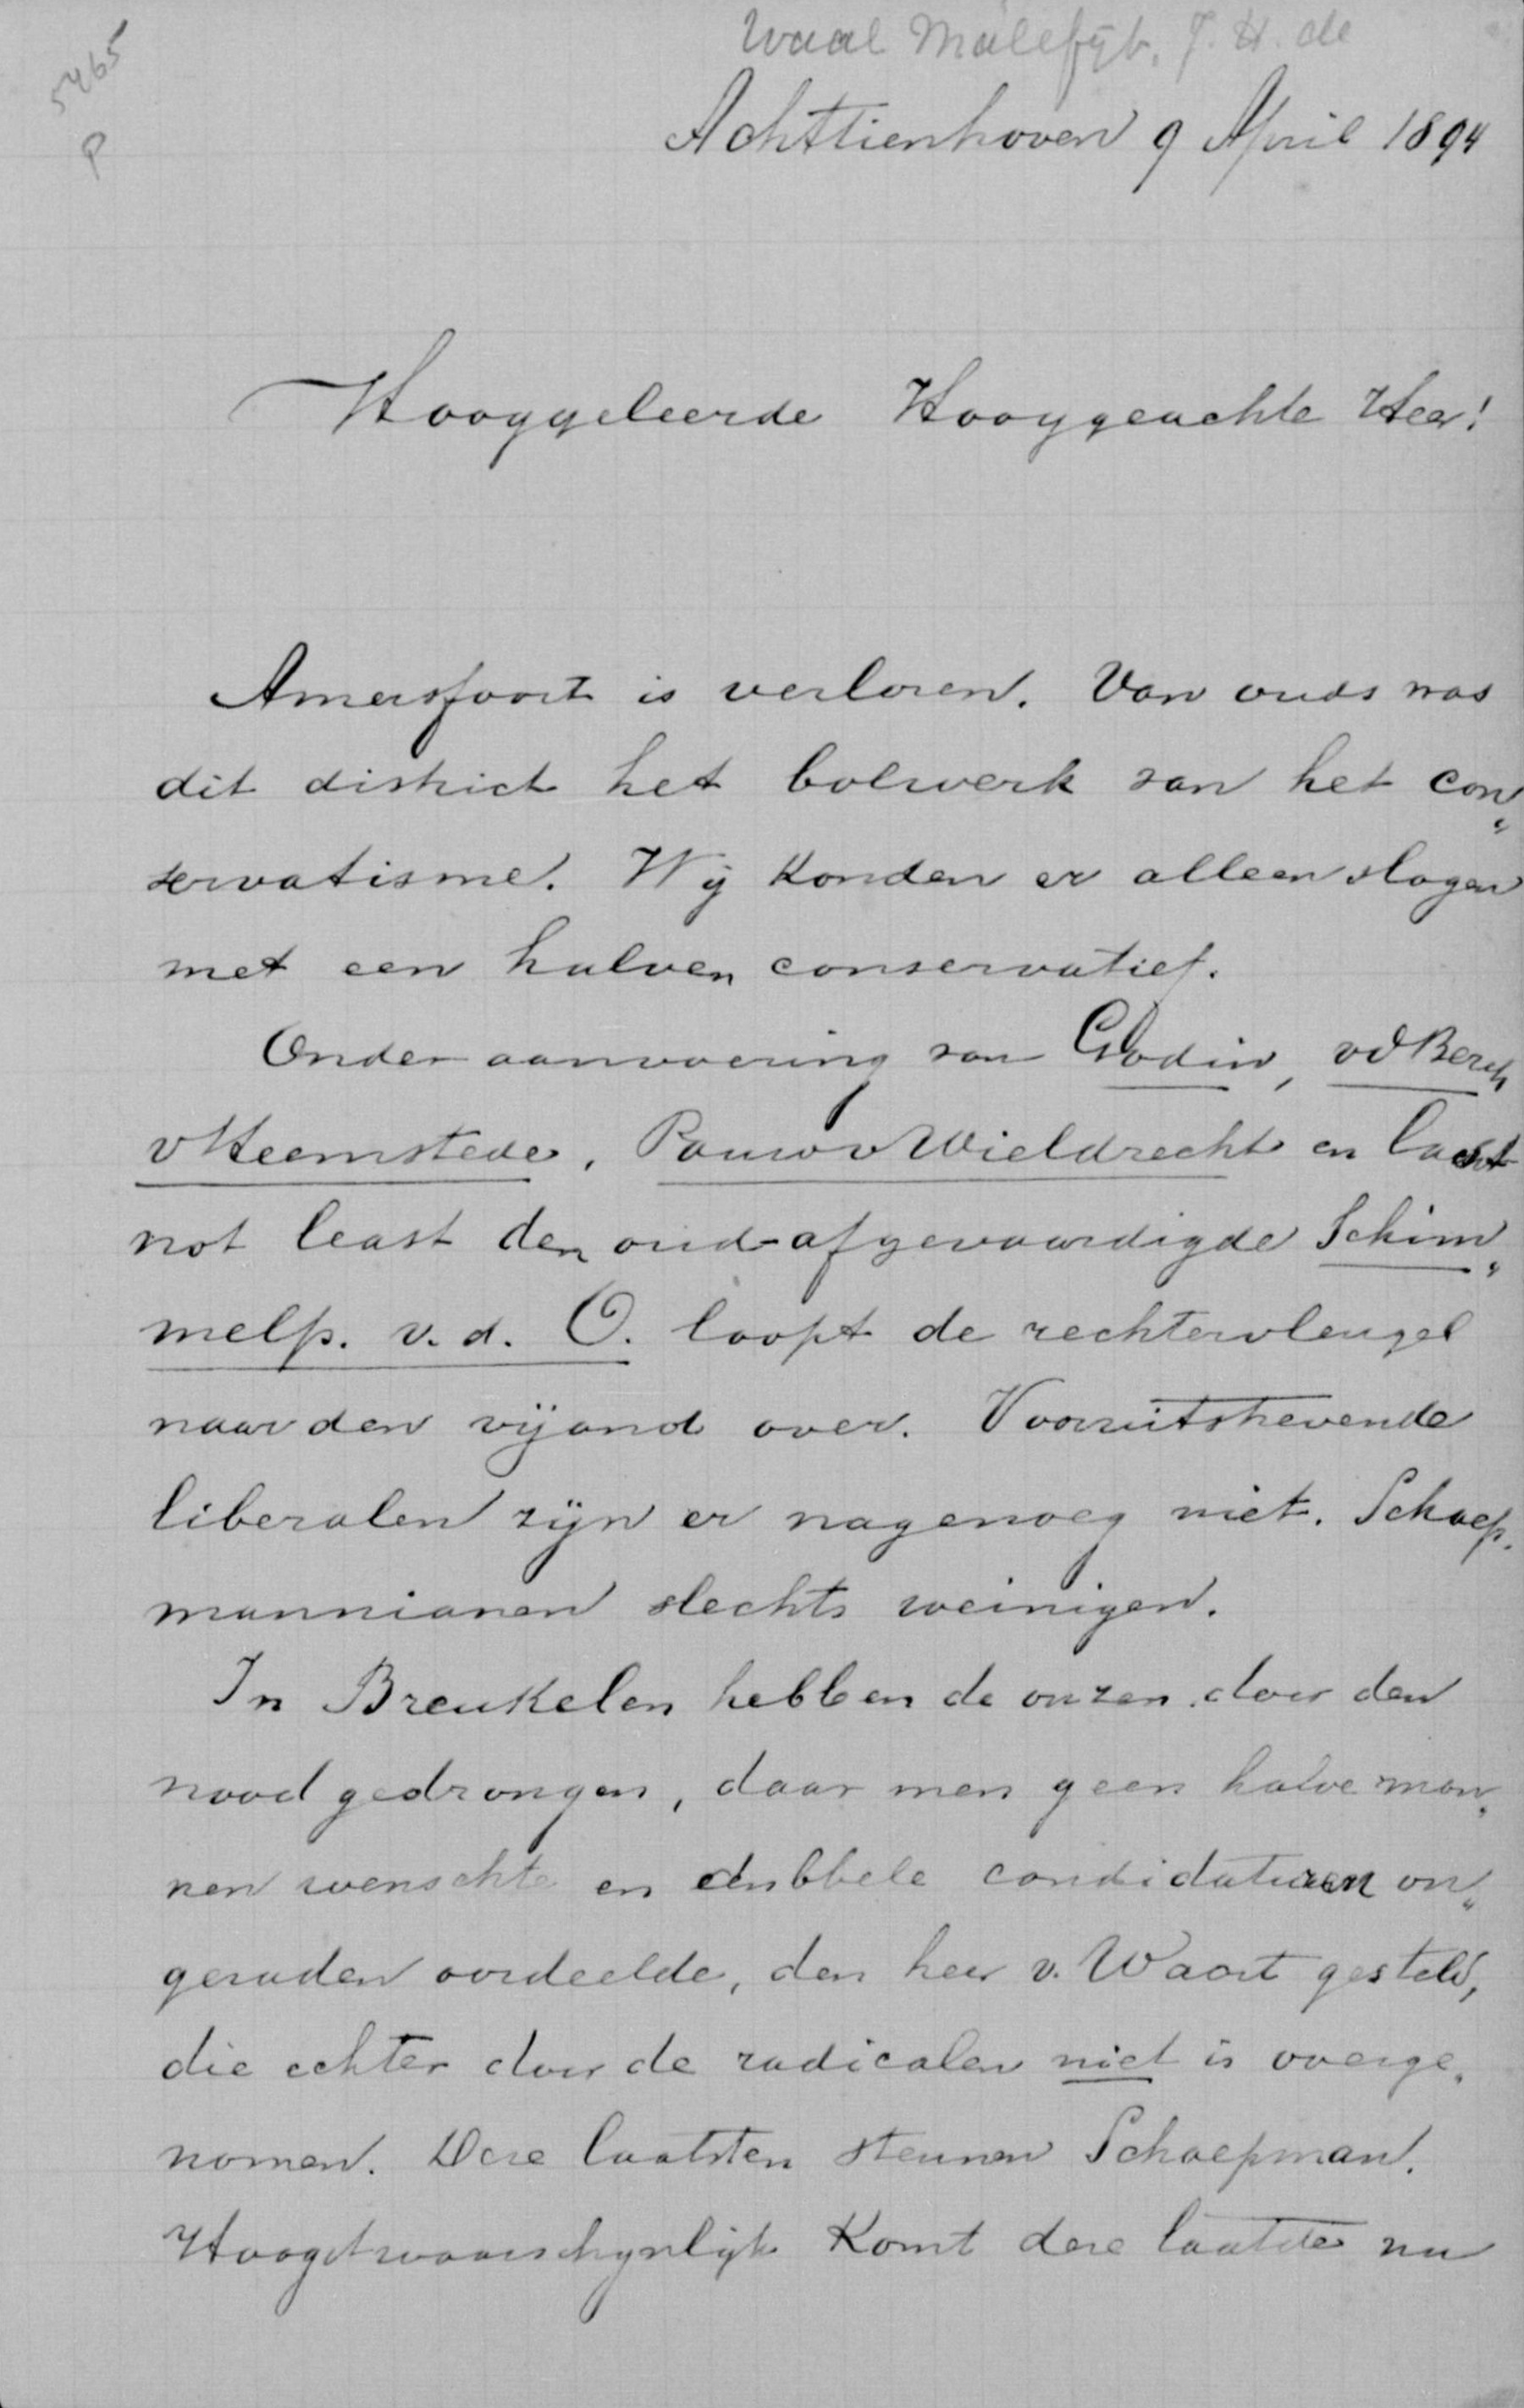 5465
P
Waal Malefijt, J. H. de
Achttienhoven 9 April 1894
Hooggeleerde Hooggeachte Heer!
Amersfoort is verloren. Van ouds was
dit district het bolwerk van het con„
servatisme. Wij konden er alleen slagen
met een halven conservatief.
Onder aanvoering van Godin, vd Berch
v Heemstede, Pauw v Wieldrecht en last
not least den oud-afgevaardigde Schim„
melp. v. d. O. loopt de rechtervleugel
naar den vijand over. Vooruitstrevende
liberalen zijn er nagenoeg niet. Schaep„
mannianen slechts weinigen.
In Breukelen hebben de onzen door den
nood gedrongen, daar men geen halve man„
nen wenschte en dubbele candidaturen on„
geraden oordeelde, den heer v. Waart gesteld,
die echter door de radicalen niet is overge„
nomen. Deze laatsten steunen Schaepman.
Hoogstwaarschijnlijk komt deze laatste nu